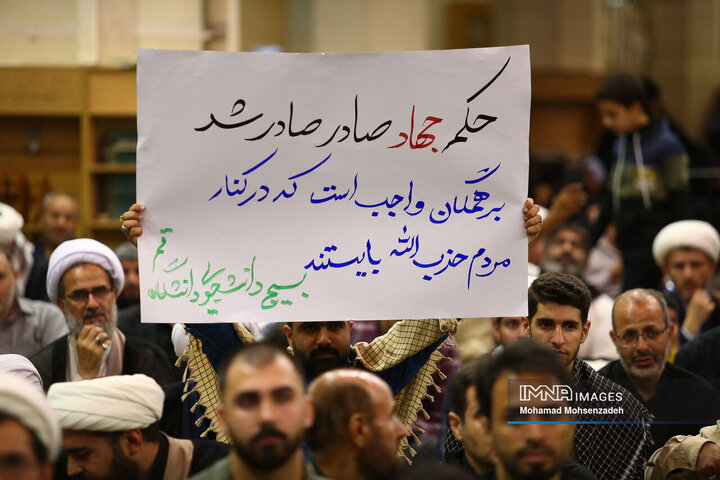 حکم جهاد صادر صادر شد
برهمگان واجب است که در کنار
مردم حزب الله بایستند
بسیج دانشجویی دانشگاه
قم
IMNA IMAGES
Mohamad Mohsenzadeh